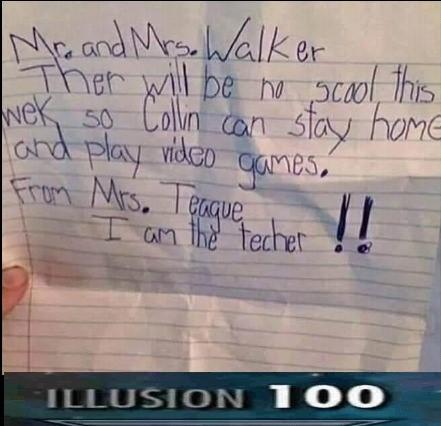 Mr. and Mrs. Walker
Ther will be no scool this
wek so Collin can stay home
and play video games.
From Mrs. Teague
I am the techer !!
ILLUSION 100